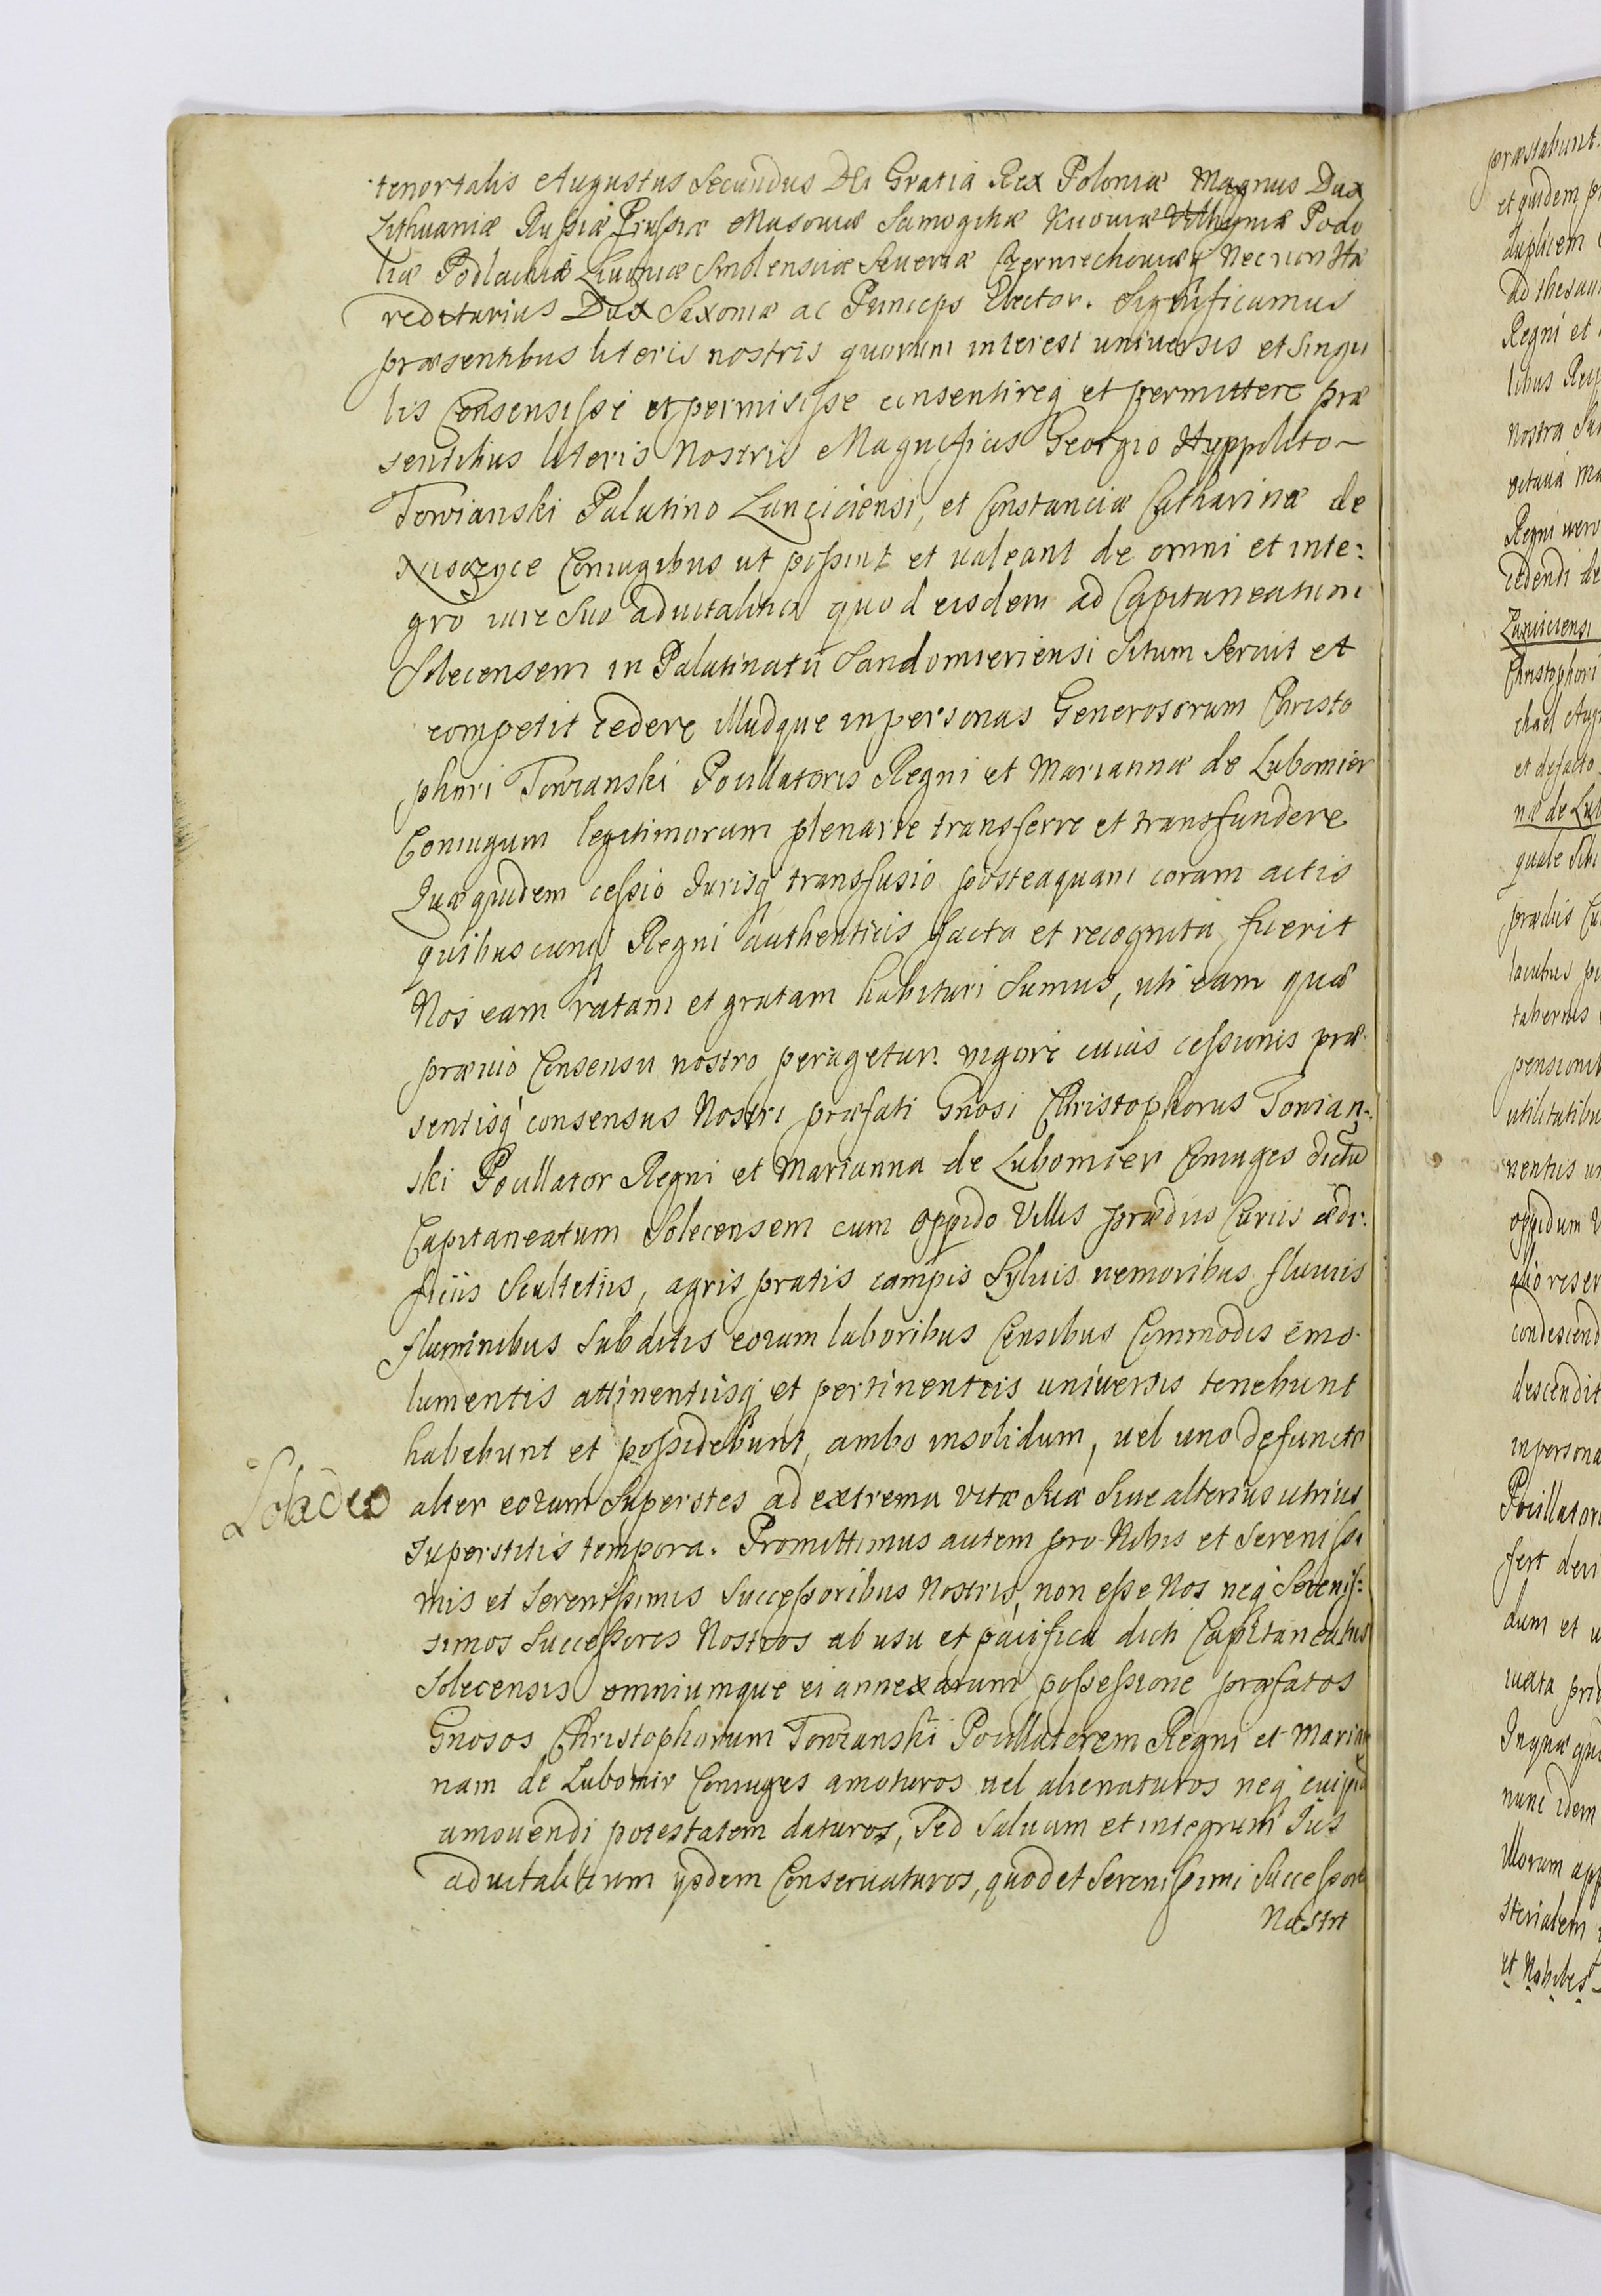 tenor talis Augustus Secundus Dei Gratia Rex Poloniæ Magnus Dux
Lithuaniæ Russiæ Prussiæ Masoviæ Samogitiæ Kijoviæ Volhyniæ Podo
liæ Podlachiæ Livoniæ Smolensciæ Severiæ Czerniechoviæq Necnon Hæ
reditarius Dux Saxoniæ ac Princeps Elector. Significamus
præsentibus literis nostris quorum interest universis et singu
lis Consensisse et permisisse consentireq et permittere præ
sentibus literis Nostris Magnificis Georgio Hyppolito
Towianski Palatino Lanciciensi, et Constanciæ Catharinæ de
Niszczyce Coniugibus ut possint et valeant de omni et inte:
gro iure suo advitalitio quod eisdem ad Capitaneatum
Solecensem in Palatinatu Sandomieriensi situm servit et
competit cedere illudque in personas Generosorum Christo
phori Towianski Pocillatoris Regni et Mariannæ de Lubomier
Coniugum legitimorum plenarie transferre et transfundere
Quæ quidem cessio Jurisq transfusio posteaquam coram actis
quibuscunq Regni authenticis facta et recognita fuerit
Nos eam ratam et gratam habituri sumus, uti eam quæ
prævio Consensu nostro peragetur. vigore cuius cessionis præ
sentisq consensus Nostri præfati Gnosi Christophorus Towian:
ski Pocillator Regni et Marianna de Lubomier Coniuges dictũ
Capitaneatum Solecensem cum Oppido Villis prædiis Curiis ædi:
ficiis Scultetiis, agris pratis campis Sylvis nemoribus fluviis
fluminibus Subditis eorum laboribus Censibus Commodis emo
lumentis attinentiisq et pertinentiis universis tenebunt
habebunt et possidebunt, ambo insolidum, vel uno defuncto
Soli Deo
alter eorum Superstes ad extrema vitæ suæ sive alterius utrius
superstitis tempora. Promittimus autem pro Nobis et Serenissi
mis et Serenissimis Successoribus Nostris, non esse Nos neq Serenis:
simos Successores Nostros ab usu et pacifica dicti Capitaneatus
Solecensis omniumque ei annexarum possessione præfatos
Gnosos Christophorum Towianski Pocillatorem Regni et Marian
nam de Lubomir Coniuges amoturos vel alienaturos neq cuipiã
amovendi potestatem daturos, Sed Salvum et integrum Jus
advitalitium ijsdem Conservaturos, quod et Serenissimi Successores
Nostri
præstabunt.
duplicem
Regni et
Regni vero
cedendi de
Lanciciensi
Christophori
et de facto
tabernis
utilitatibus
oppidum
descendit
in persona
fert
dum et
nunc idem
Illorum
et Nobiles